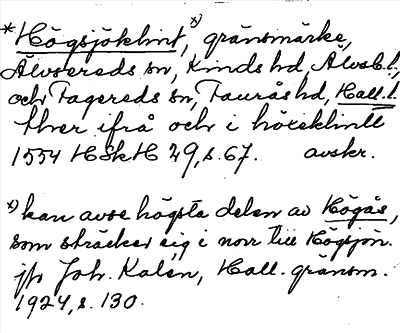 *Högsjöklint,x) gränsmärke,
Älvsereds sn, Kinds hd, Älvsb. l.,
och Fagereds sn, Faurås hd, Hall. l.
thær ifrå och i höieklintt
1554 HSkH 29, s. 67. avskr.
x) kan avse högsta delen av Högås,
som sträcker sig i norr till Högsjön.
jfr Joh. Kalén, Hall. gränsm.
1924, s. 130.